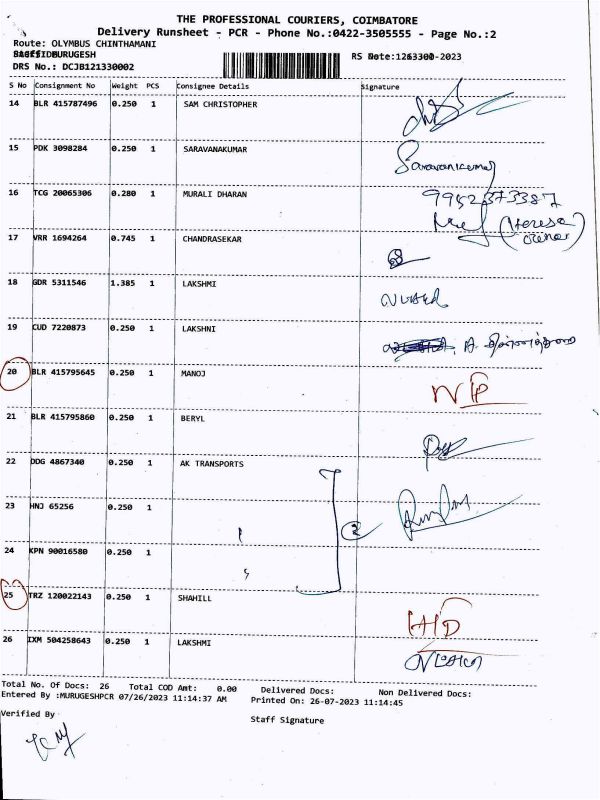 THE PROFESSIONAL COURIERS, COIMBATORE
Delivery Runsheet - PCR - Phone No.:0422-3505555 - Page No.:2
Route: OLYMBUS CHINTHAMANI
DRS No.: DCJB121330002
S No Consignment No Weight PCS Consignee Details Signature
14 BLR 415787496 0.250 1 SAM CHRISTOPHER
15 PDK 3098284 0.250 1 SARAVANAKUMAR Saravanakumar
16 TCG 20065306 0.280 1 MURALI DHARAN 9952373387
17 VRR 1694264 0.745 1 CHANDRASEKAR
18 GDR 5311546 1.385 1 LAKSHMI
19 CUD 7220873 0.250 1 LAKSHNI
20 BLR 415795645 0.250 1 MANOJ
21 BLR 415795860 0.250 1 BERYL
22 DDG 4867340 0.250 1 AK TRANSPORTS
23 HNJ 65256 0.250 1
24 KPN 90016580 0.250 1
25 TRZ 120022143 0.250 1 SHAHILL
26 IXM 504258643 0.250 1 LAKSHMI
Total No. Of Docs: 26 Total COD Amt: 0.00 Delivered Docs: Non Delivered Docs:
Entered By :MURUGESHPCR 07/26/2023 11:14:37 AM Printed On: 26-07-2023 11:14:45
Verified By Staff Signature